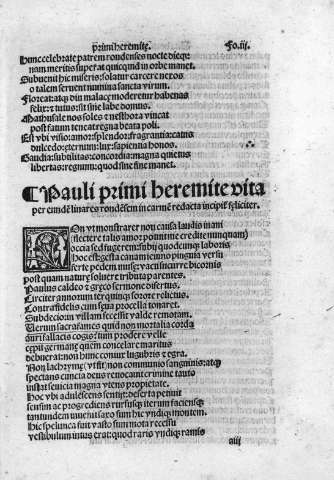 primi heremite. Fo.iij.
Hunc celebrate patrem rondenses nocte dieq;
nam meritis superat quicquid in orbe manet.
Subuenit hic miseris: soluit carcere nexos
o talem seruent numina sancta virum.
Floreat: atq; diu malace moderetur habenas
felix: et tutus: sit sine labe domus.
Mathusale nos soles et nesthora vincat
post fatum teneat regna beata poli.
Est vbi visio: amor: splendor: fragrantia: cātus
dulcedo: eternum: lux: sapientia: honos.
Gaudia: subtilitas: concordia: magna quietis
libertas: regnum: quod sine fine manet.
¶Pauli primi heremite vita
per eundē linares rondēsem in carmē redacta incipit feliciter.
NOn vt monstraret non causa laudis inani
flectere talis amor
hoc accedfugerem subij quodcunq; laboris
Hoc est: gesta canam ieiuno pinguia versu
ferte pedem musę vacui sine carere bicornis
postquam naturę soluere tributa parentes.
Paulus caldeo et greco sermone disertus.
Circiter annorum ter quinq; sorore relictus.
Contra fideles cum seua procella tonaret.
Sub decio in villam secessit valde remotam.
Uerum sacra fames quid non mortalia corda
auri fallacis cogis: tum prodere velle
cepit germanę quem concelare maritus
debuerat: non hunc coniux lugubris et egra.
Non lachrymę, vssit: non communio sanguinis: atq;
spectans cuncta deus reuocant crimine tanto
instat seuicia magna vtens propietate.
Hoc vbi adulescens sentijt: deserta petiuit
sensim ac progrediens rursusq; iterum faciensq;
tantundem inuenit saxo sum hic vndiq; montem.
Hic spelunca fuit vasto sum mota recessu
vestibulum intus erat: quod raris vndiq; ramis
aiij